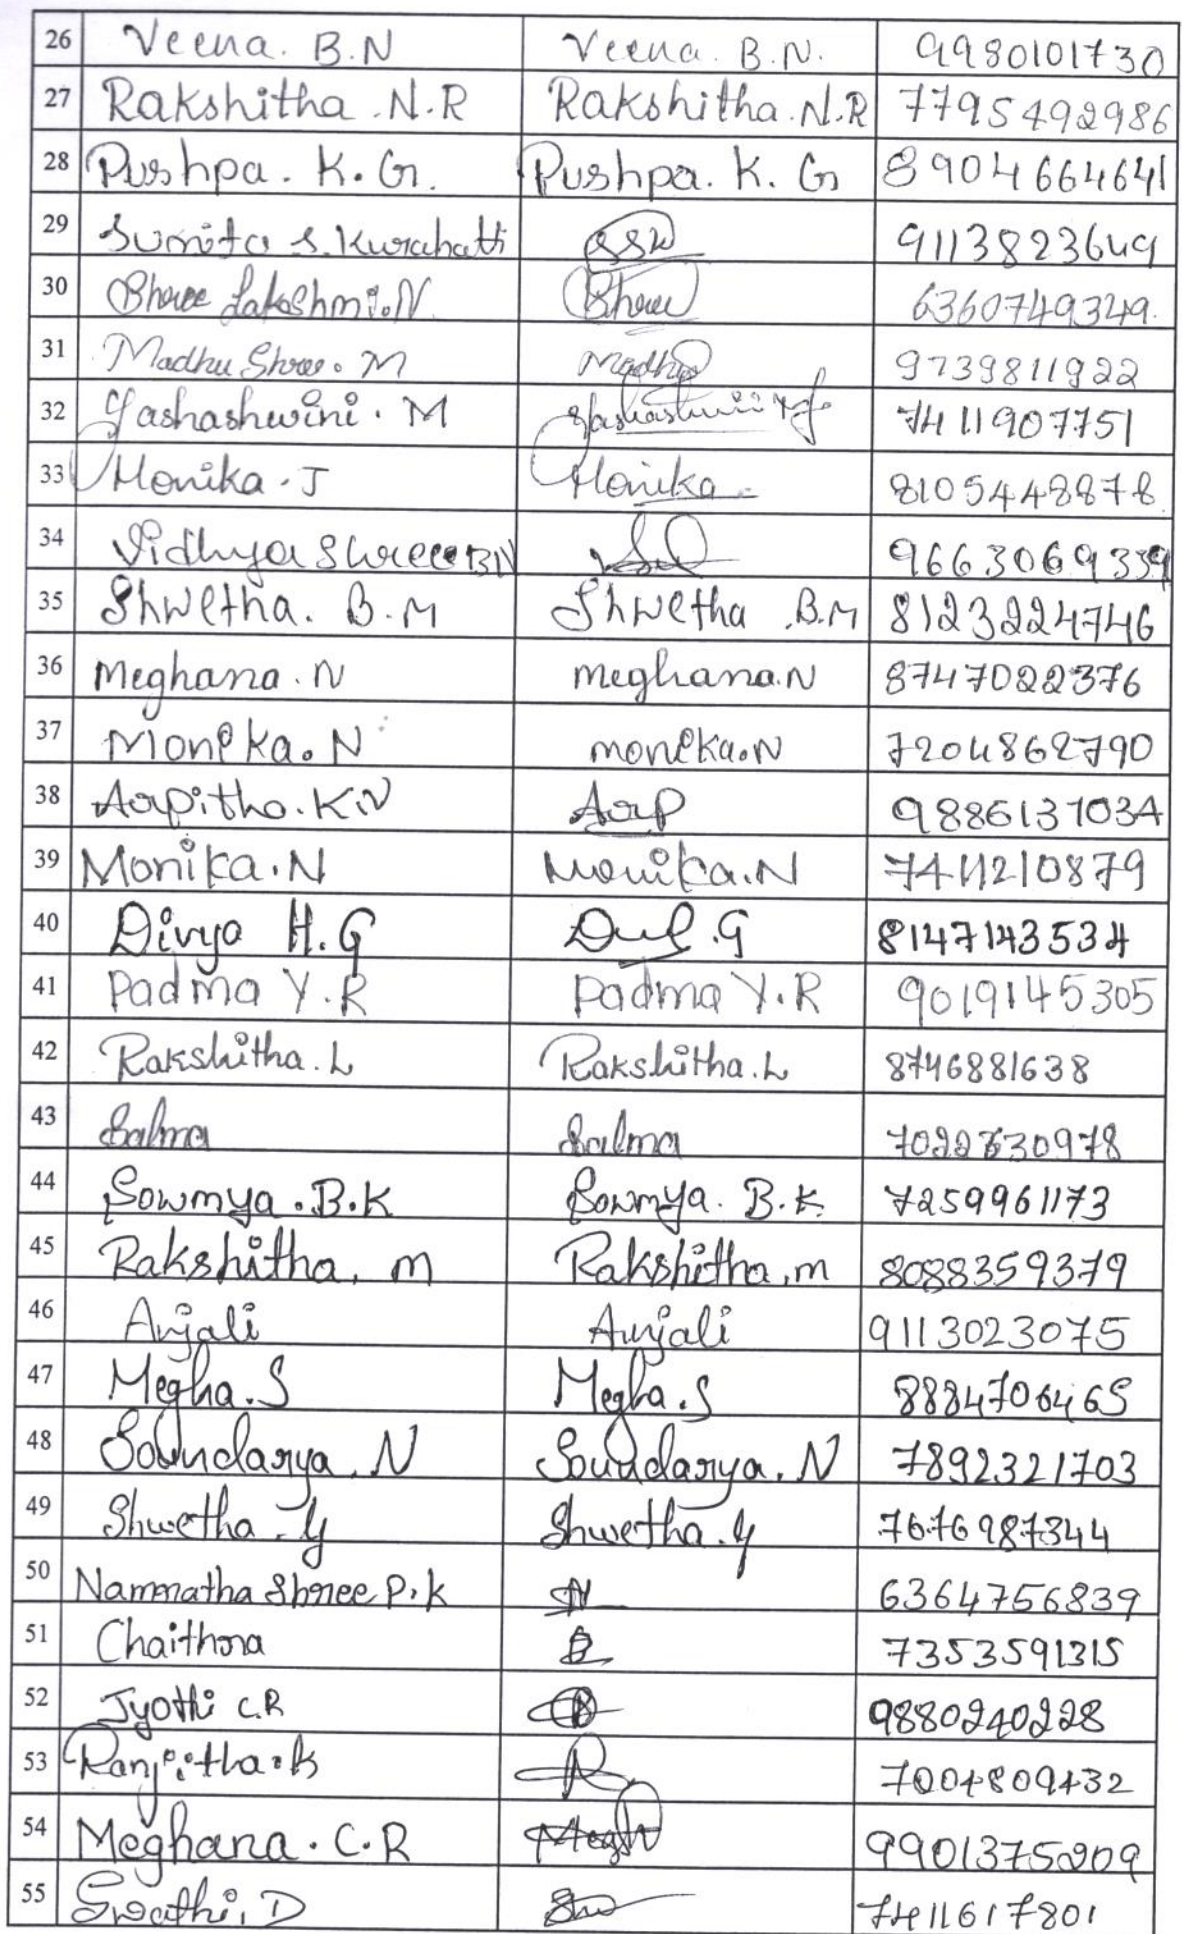 26 Veena. B.N Veena. B.N. 9980101730
27 Rakshitha .N.R Rakshitha.N.R 7795492986
28 Pushpa. K.G. Pushpa. K. G 8904664641
29 Sumita S.Kurahatti SSK 9113823649
30 Shree Lakshmi.N Shree 6360749349.
31 Madhu Shree. M Madhu 9739811922
32 Yashashwini. M Yashashwini 7411907751
33 Monika.J Monika 8105448878
34 VidhyaShree BN 9663069339
35 Shwetha. B.M Shwetha .B.M 8123224746
36 Meghana.N meghana.N 8747022376
37 Monika.N monika.N 7204862790
38 Aarpitha.K.N Aarp 9886137034
39 Monika.N Monika.N 7411210879
40 Divya H.G 8147143534
41 Padma Y.R Padma Y.R 9019145305
42 Rakshitha.L Rakshitha.L 8746881638
43 Salma Salma
44 Sowmya.B.K Sowmya. B.K 7259961173
45 Rakshitha. m Rakshitha.m 8088359379
46 Anjali Anjali 9113023075
47 Megha.S Megha.S 8884706465
48 Soundarya.N Soundarya.N 7892321703
49 Shwetha.Y Shwetha.Y 7676987344
50 Nammratha Shree P.K N 6364756839
51 Chaithra 7353591315
52 Jyothi C.R 9880240228
53 Ranjitha.K R 7004809432
54 Meghana.C.R Megh 9901375209
55 Swathi.D 7411617801